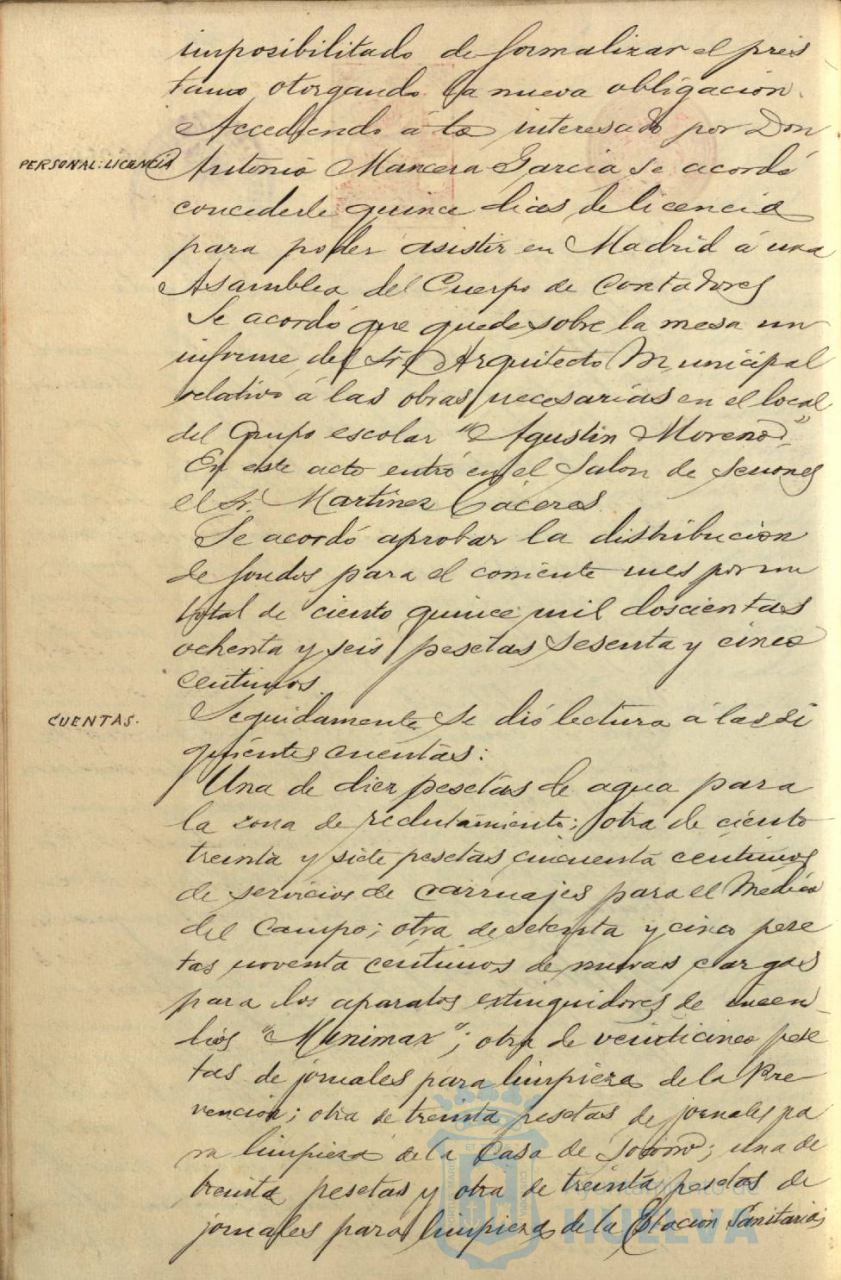 imposibilitado de formalizar el prés
tamo otorgando la nueva obligación.
Accediendo á lo interesado por Don
PERSONAL: LICENCIA
Antonio Mancera Garcia se acordó
concederle quince dias de licencia
para poder asistir en Madrid á una
Asamblea del Cuerpo de Contadores
Se acordó que quede sobre la mesa un
informe del Sr. Arquitecto Municipal
relativo á las obras necesarias en el local
del Grupo escolar "Agustin Moreno".
En este acto entró en el Salon de Sesiones
el Sr. Martínez Cáceres
Se acordó aprobar la distribucion
de fondos para el corriente mes por un
total de ciento quince mil doscientas
ochenta y seis pesetas sesenta y cinco
centimos.
CUENTAS.
Seguidamente se dió lectura á las si
guientes cuentas:
Una de diez pesetas de agua para
la zona de reclutamiento; otra de ciento
treinta y siete pesetas cincuenta céntimos
de servicios de carruajes para el Medico
del Campo; otra de setenta y cinco pese
tas noventa céntimos de nuevas cargas
para los aparatos extinguidores de incen-
dios "Minimax"; otra de veinticinco pese
tas de jornales para limpieza de la Pre
vención; otra de treinta pesetas de jornales pa
ra limpieza de la Casa de Socorro; una de
treinta pesetas y otra de treinta pesetas de
jornales para limpieza de la Estacion Sanitaria;
Ayuntamiento de
HUELVA